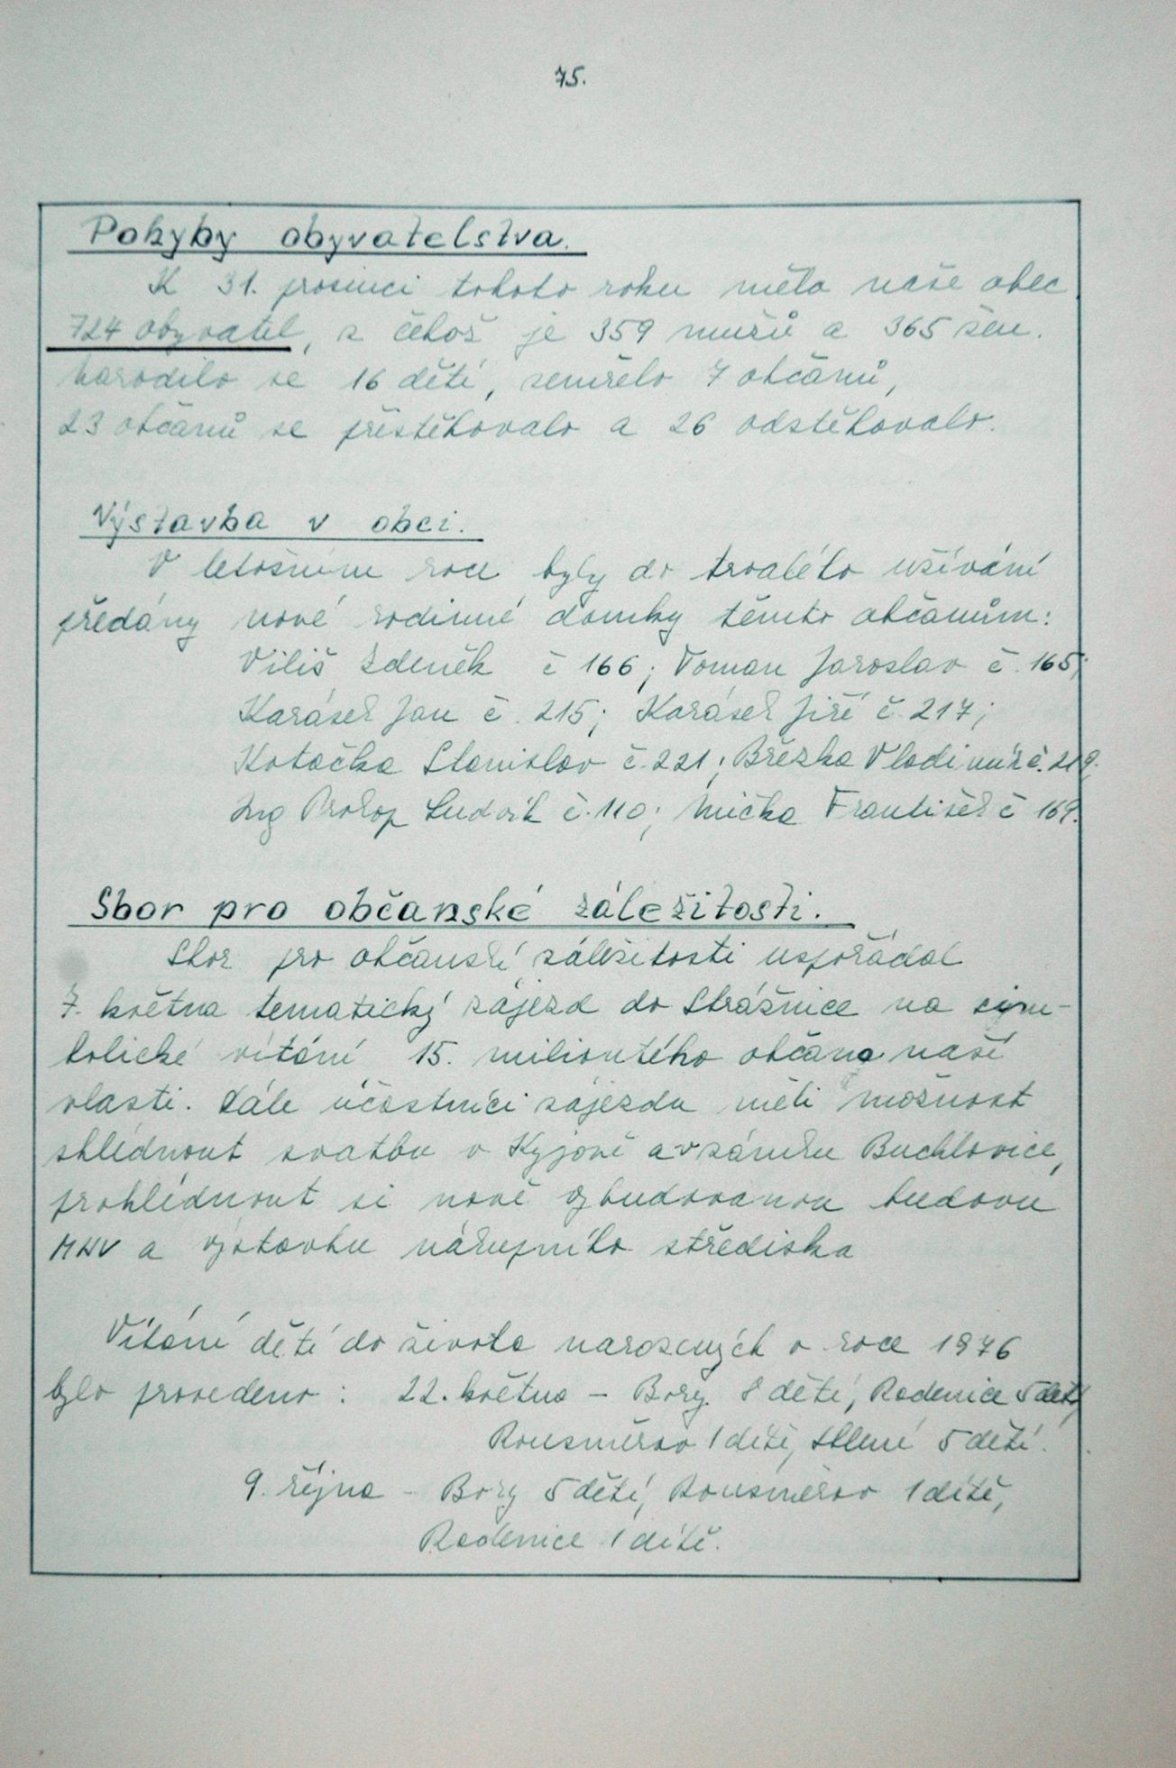 75.
Pohyby obyvatelstva.
K 31. prosinci tohoto roku měla naše obec
724 obyvatel, z čehož je 359 mužů a 365 žen.
Narodilo se 16 dětí, zemřelo 7 občanů,
23 občanů se přistěhovalo a 26 odstěhovalo.
Výstavba v obci.
V letošním roce byly do trvalého užívání
předány nové rodinné domky těmto občanům:
Viliš Zdeněk č 166; Toman Jaroslav č. 165;
Karásek Jan č. 215; Karásek Jiří č. 217;
Kotačka Stanislav č. 221; Březka Vladimír č. 219.
Ing Prokop Ludvík č. 110; Mička František č 169.
Sbor pro občanské záležitosti.
Sbor pro občanské záležitosti uspořádal
7. května tematický zájezd do Strážnice na sym-
bolické vítání 15. miliontého občana naší
vlasti. Dále účastníci zájezdu měli možnost
shlédnout svatbu v Kyjově a v zámku Buchlovice,
prohlédnout si nově vybudovanou budovu
MNV a výstavbu nákupního střediska
Vítání dětí do života narozených v roce 1976
bylo provedeno: 22. května - Bory 8 dětí, Radenice 5 dětí,
Rousměrov 1 dítě, Sklené 5 dětí.
9. října - Bory 5 dětí, Rousměrov 1 dítě,
Radenice 1 dítě.